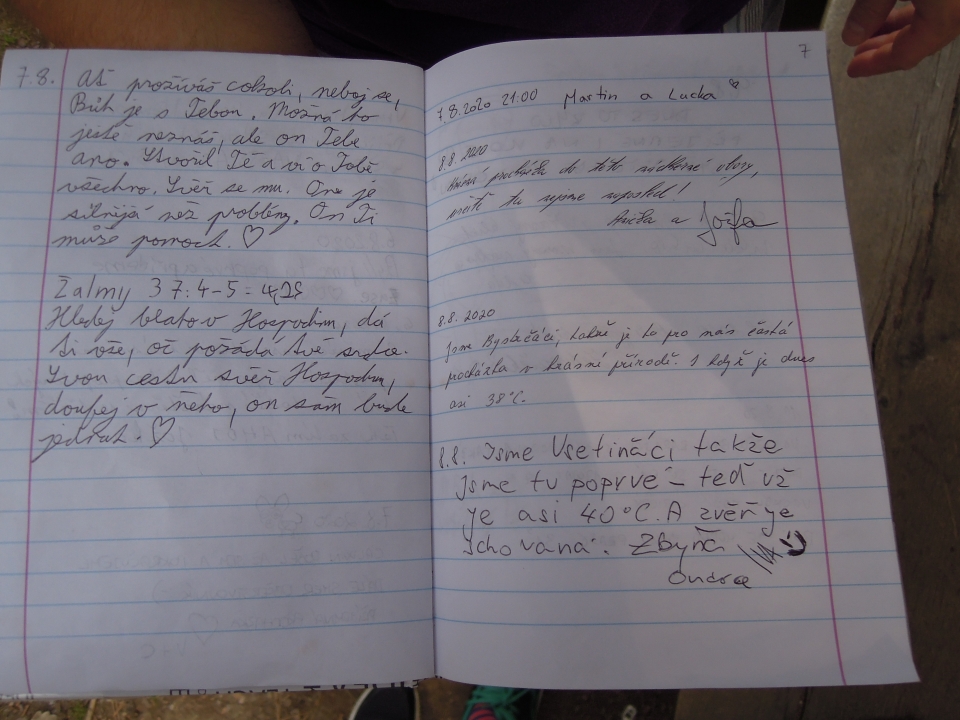 7.8. Ať prožíváš cokoli, neboj se,
Bůh je s Tebou. Možná ho
ještě neznáš, ale on Tebe
ano. Stvořil Tě a ví o Tobě
všechno. Svěř se mu. On je
silnější než problémy. On Ti
může pomoch. ♡
Žalmy 37:4-5
Hledej blaho v Hospodinu, dá
ti vše, oč požádá tvé srdce.
Svou cestu svěř Hospodinu,
doufej v něho, on sám bude
jednat. ♡
7
7.8.2020 21:00 Martin a Lucka
8.8.2020
Krásná procházka do této nádherné obory,
určitě tu nejsme naposled!
a Jožka
8.8.2020
Jsme Bystřičáci, takže je to pro nás častá
procházka v krásné přírodě. I když je dnes
asi 38°C.
8.8. Jsme Vsetináci takže
jsme tu poprvé - teď už
je asi 40°C. A zvěř je
schovaná. Zbyňa
Ondra